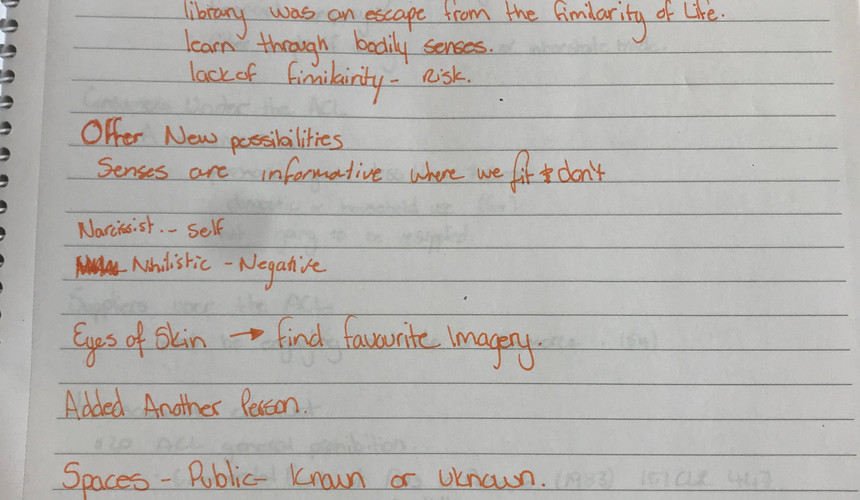 library was an escape from the fimilarity of Life.
learn through bodily senses.
lack of fimilairity - Risk.
Offer New possibilities
Senses are informative where we fit & don't
Narcissist - Self
Nhilistic - Negative
Eyes of Skin → find favourite Imagery.
Added Another Person.
Spaces - Public - Known or uknown.